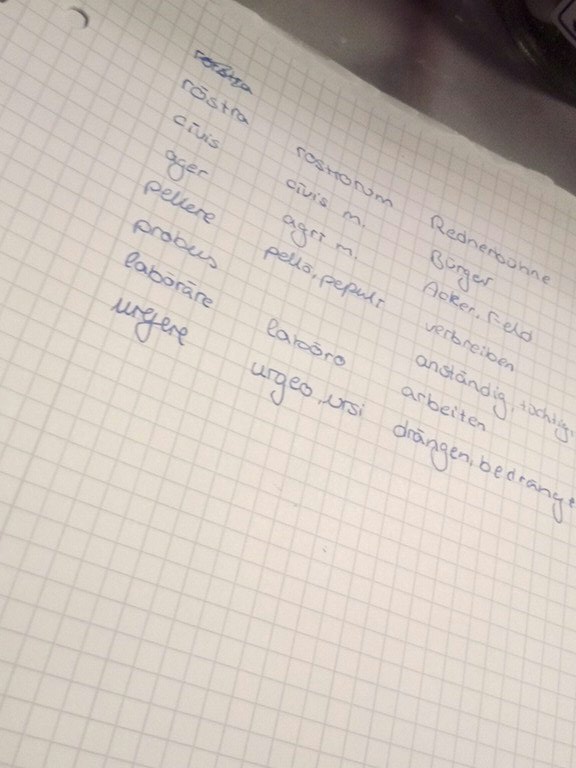 rōstra rostrorum Rednerbühne
cīvis cīvis m. Bürger
ager agrī m. Acker, Feld
pellere pellō, pepulī verbreiben
probus anständig, tüchtig,
labōrāre labōro arbeiten
urgere urgeo, ursi drängen, bedränge